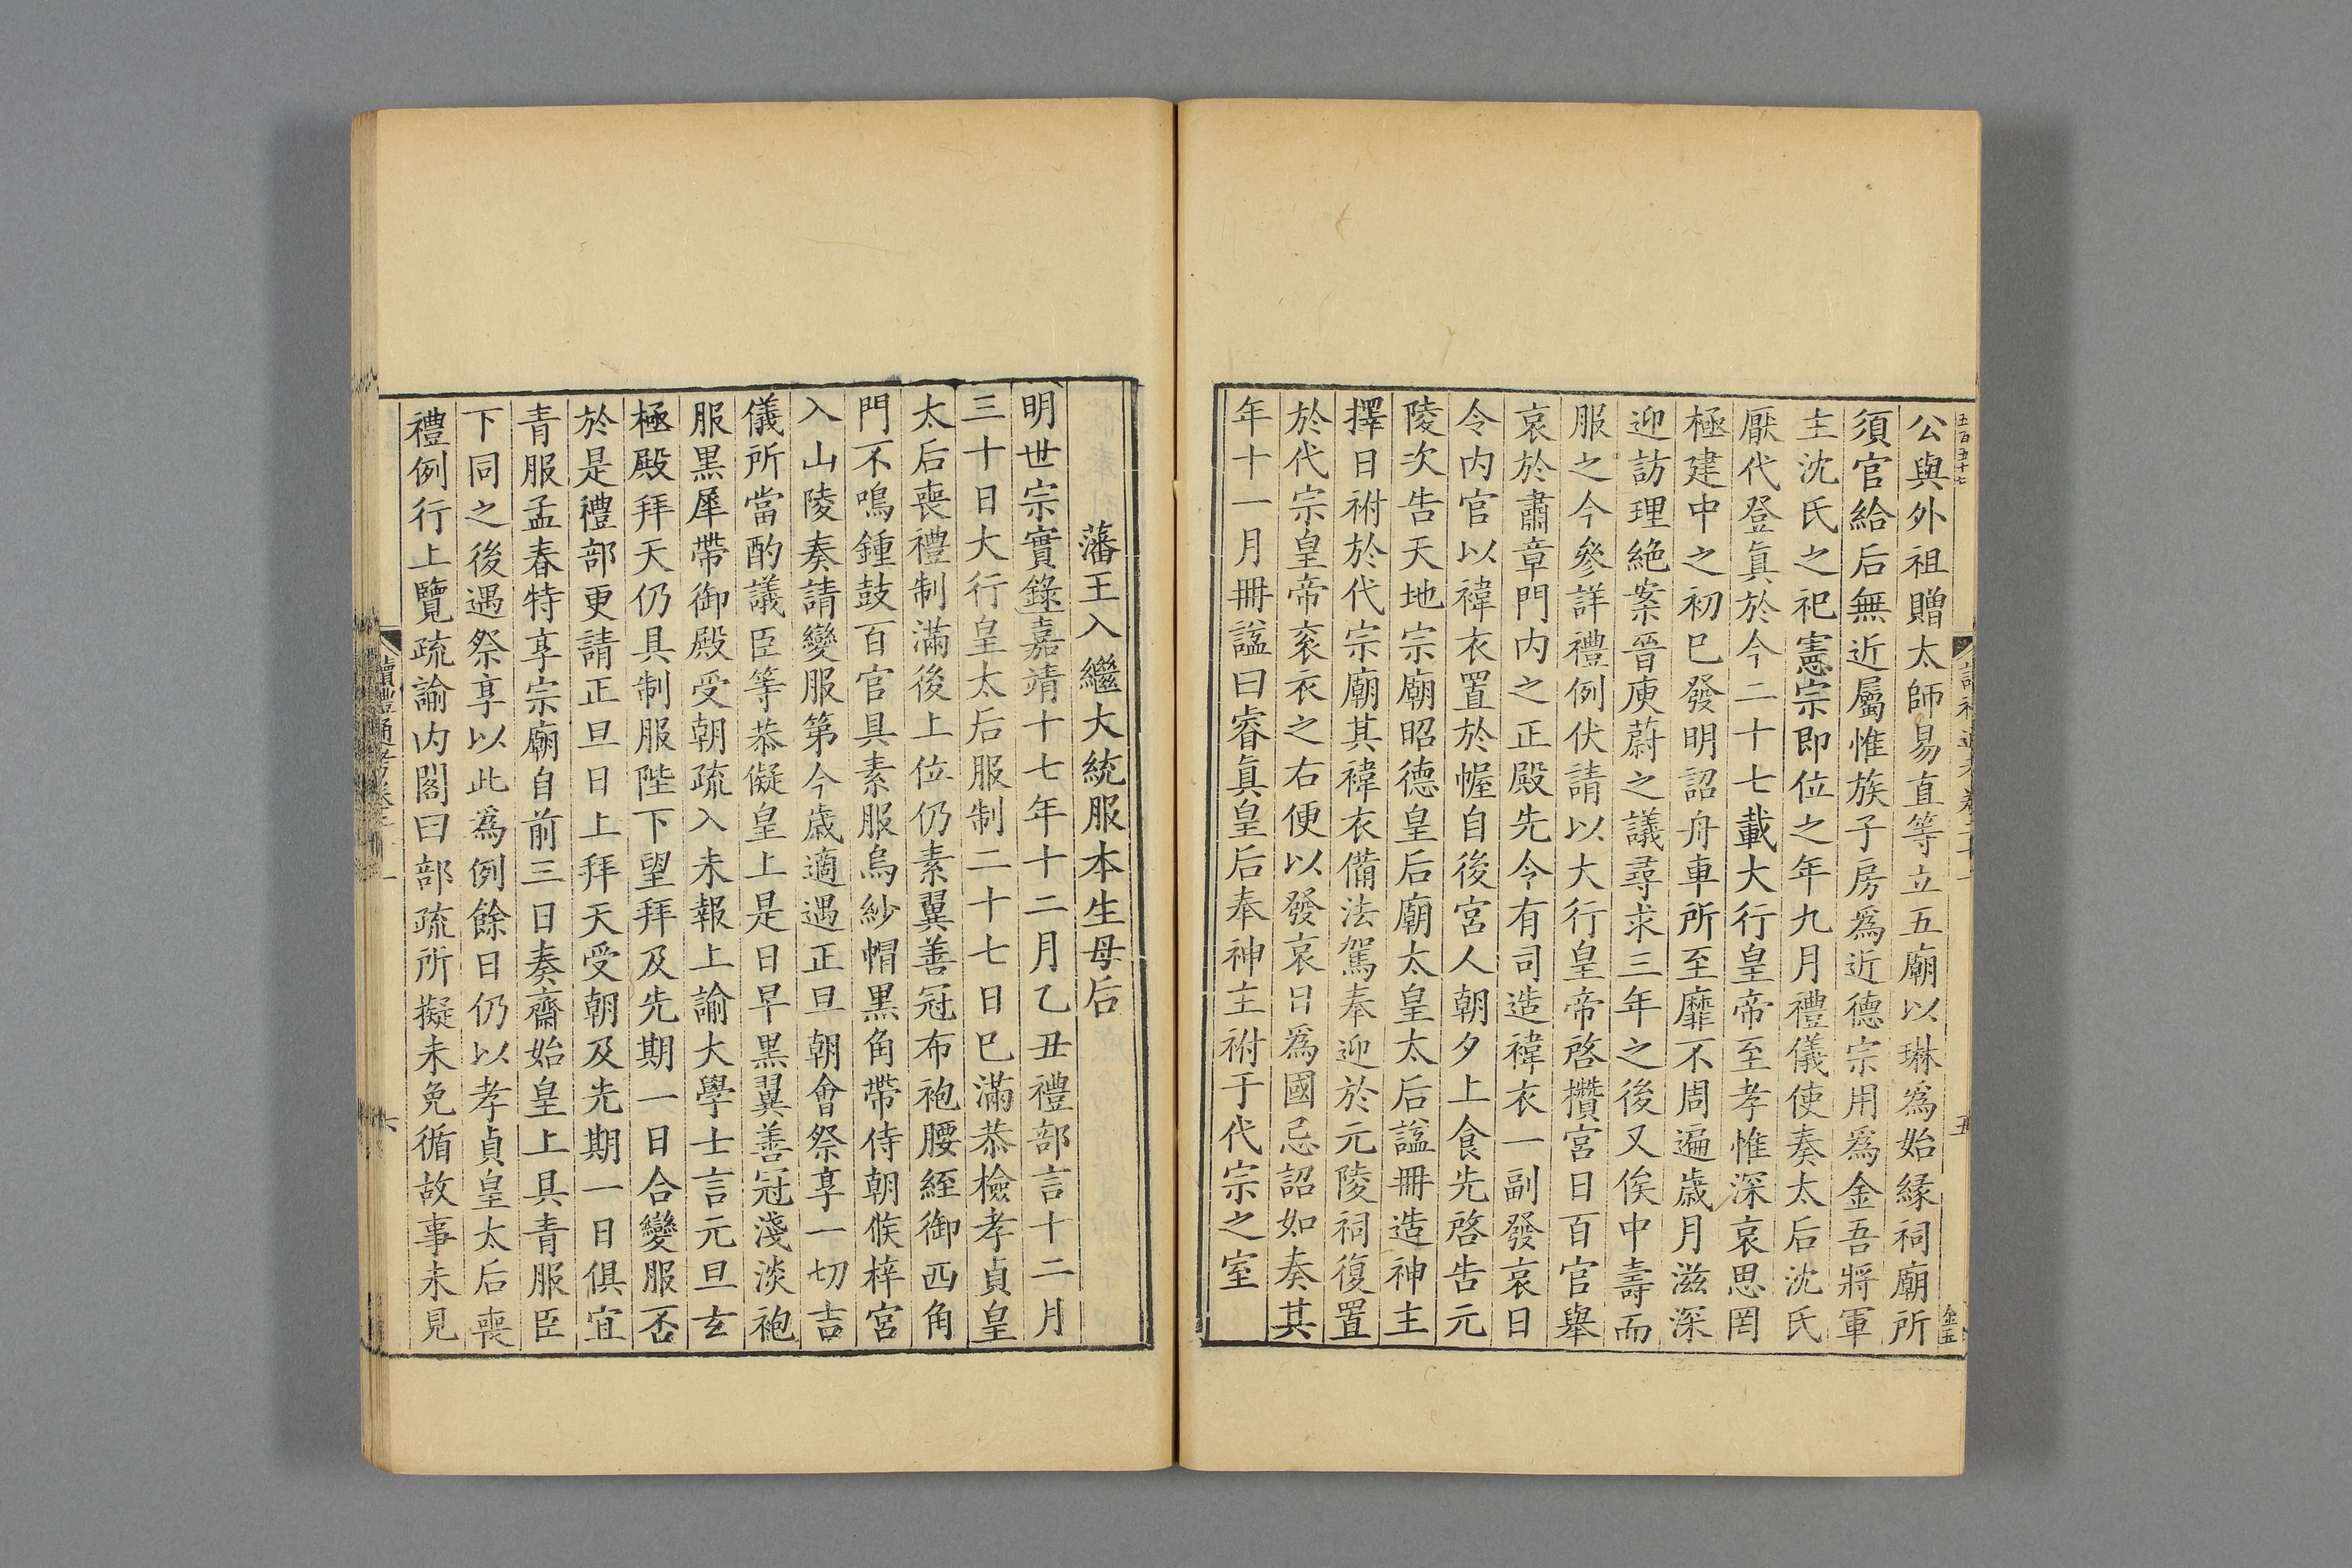 五百五十七
公與外祖贈太師易直等立五廟以琳爲始縁祠廟所
須官給后無近屬惟族子房爲近德宗用爲金吾將軍
主沈氏之祀憲宗即位之年九月禮儀使奏太后沈氏
厭代登眞於今二十七載大行皇帝至孝惟深哀思罔
極建中之初巳發明詔舟車所至靡不周遍歲月滋深
迎訪理絶案晉庾蔚之議尋求三年之後又俟中壽而
服之今參詳禮例伏請以大行皇帝啓攢宮日百官舉
哀於肅章門内之正殿先令有司造褘衣一副發哀日
令内官以褘衣置於幄自後宮人朝夕上食先啓告元
陵次告天地宗廟昭德皇后廟太皇太后諡冊造神主
擇日祔於代宗廟其褘衣備法駕奉迎於元陵祠復置
於代宗皇帝衮衣之右便以發哀日爲國忌詔如奏其
年十一月冊諡曰睿眞皇后奉神主祔于代宗之室
藩王入繼大統服本生母后
明世宗實錄嘉靖十七年十二月乙丑禮部言十二月
三十日大行皇太后服制二十七日巳滿恭檢孝貞皇
太后喪禮制滿後上位仍素翼善冠布袍腰絰御西角
門不鳴鍾鼓百官具素服烏紗帽黑角帶侍朝候梓宮
入山陵奏請變服第今歲適遇正旦朝會祭享一切吉
儀所當酌議臣等恭儗皇上是日早黒翼善冠淺淡袍
服黒犀帶御殿受朝疏入未報上諭大學士言元旦玄
極殿拜天仍具制服陛下望拜及先期一日合變服否
於是禮部更請正旦日上拜天受朝及先期一日俱宜
青服孟春特享宗廟自前三日奏齋始皇上具青服臣
下同之後遇祭享以此爲例餘日仍以孝貞皇太后喪
禮例行上覽疏諭内閣曰部疏所擬未免循故事未見
讀禮通考卷二十一
六